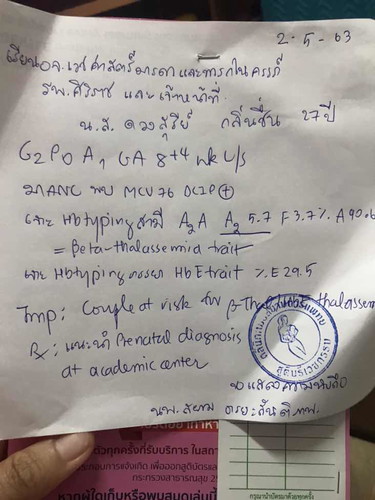 2-5-63
เรียน อจ.เวชศาสตร์มารดาและทารกในครรภ์
รพ.ศิริราช และเจ้าหน้าที่
น.ส. ดวงสุรีย์ กลิ่นชื่น 27 ปี
G2P0A1 GA 8+4 wk U/S
มา ANC พบ MCV 76 DCIP ⊕
เจาะ Hb typing สามี A2A A2 5.7 F 3.7% A 90.6
= Beta-thalassemia trait
เจาะ Hb typing ภรรยา Hb E trait % E 29.5
Imp: Couple at risk for β-Thal E thalassem
Rx: แนะนำ Prenatal diagnosis
at academic center
สูตินรีเวชกรรม
ขอแสดงความนับถือ
นพ.
ตัวทุกครั้งที่รับบริการ ในสถา
กระทรวงสาธารณสุข
หากผู้ใดเก็บหรือพบสมุดเล่มนี้
กรุณานำบัตรมาด้วยทุกครั้ง